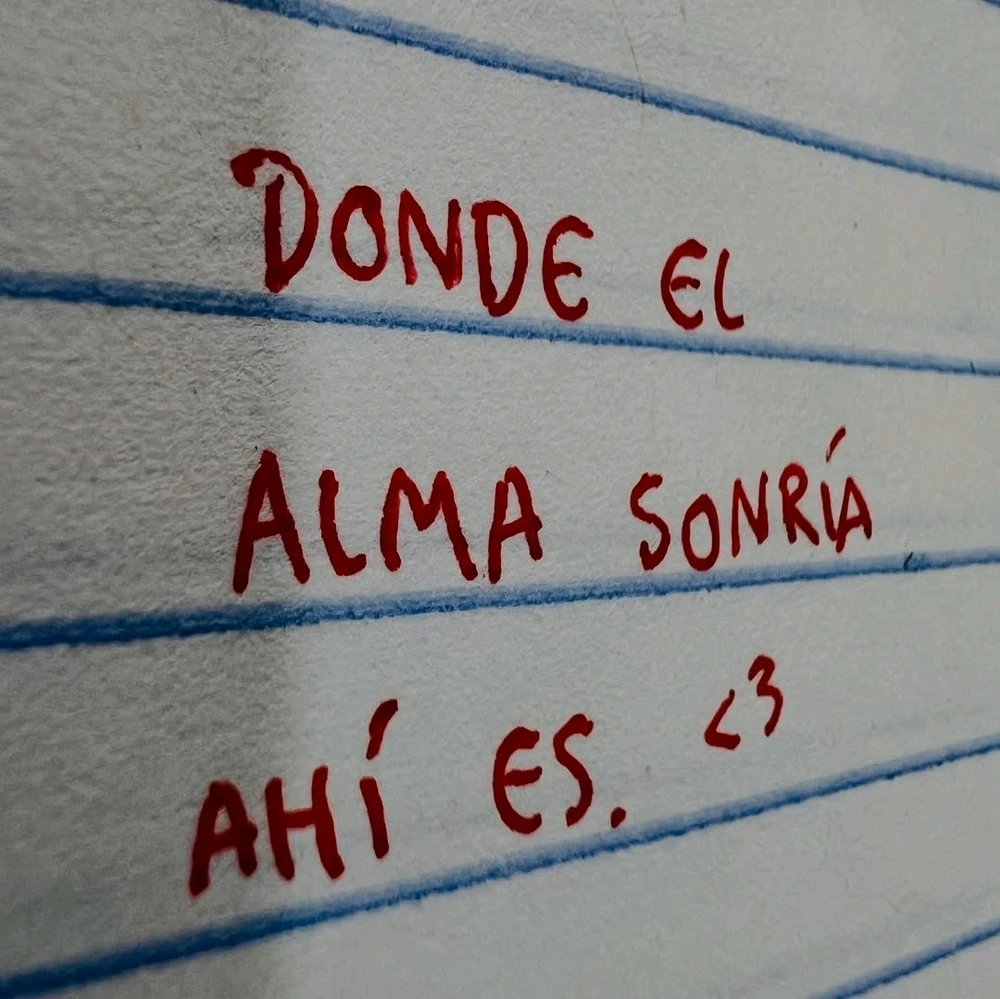 DONDE EL
ALMA SONRÍA
AHÍ ES. <3